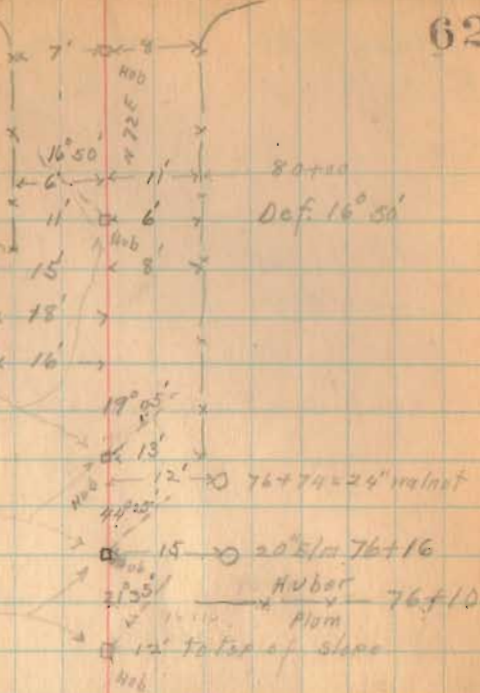 62
7' 8'
Hub
N 72 E
16° 50'
6' 11' 80+00
11' 6' Def. 16° 50'
Hub
15' 8'
18'
16'
19° 05'
13'
Hub
12' 76+74 = 24" walnut
44° 25'
15 20" Elm 76+16
Hub
21° 35'
Huber 76+10
Plom
12' to top of slope
Hub